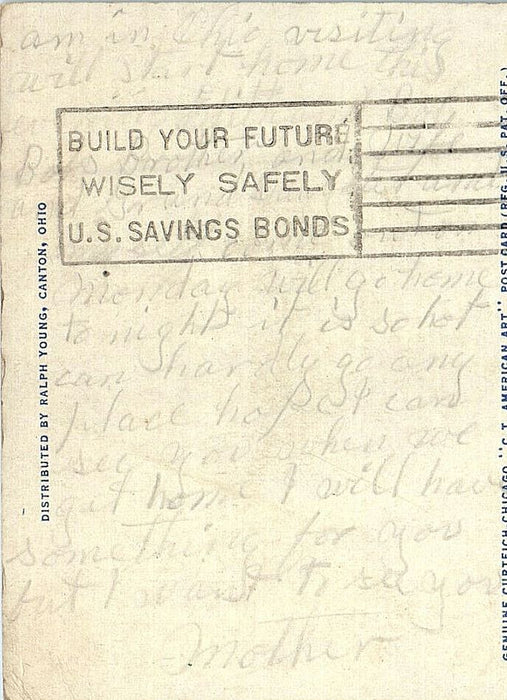 am in Ohio visiting
will start home this
BUILD YOUR FUTURE
WISELY SAFELY
U.S. SAVINGS BONDS
Monday will go home
to night it is so hot
can hardly go any
place hope I can
see you when we
get home I will have
something for you
but I want to see you
Mother
DISTRIBUTED BY RALPH YOUNG, CANTON, OHIO
GENUINE CURTEICH CHICAGO "C.T. AMERICAN ART" POST CARD (REG. U.S. PAT. OFF.)